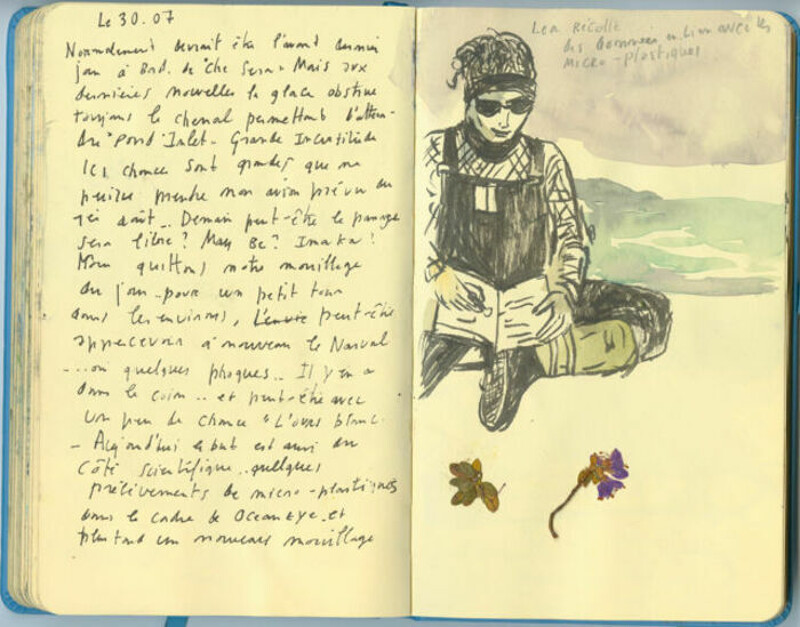 Le 30.07
Normalement devrait être l'avant dernier
jour à Bord de "Che Sera" Mais aux
dernières nouvelles la glace obstrue
toujours le chenal permettant d'atten-
dre "Pond Inlet - Grande Incertitude
les chances sont grandes que ne
puisse prendre mon avion prévu du
1er août.. Demain peut-être le passage
sera libre? May Be? Imaka?
Nous quittons notre mouillage
du jour pour un petit tour
dans les environs, peut-être
appercevoir à nouveau le Narval
....ou quelques phoques.. Il y en a
dans le coin.. et peut-être avec
un peu de chance "L'ours blanc
- Aujourd'hui le but est aussi du
côté scientifique..quelques
prélèvements de micro-plastiques
dans le cadre de OceanEye.et
plus tard un nouveau mouillage
Lea Récolte
des données en lien avec les
micro-plastiques